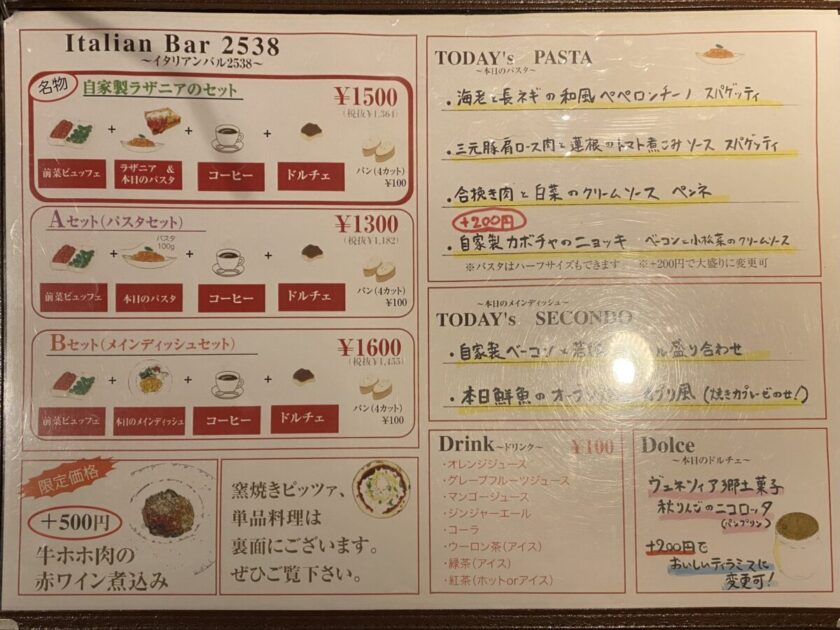 Italian Bar 2538
～イタリアンバル2538～
名物
自家製ラザニアのセット
¥1500
(税抜¥1,364)
+ + +
前菜ビュッフェ
ラザニア &
本日のパスタ
コーヒー
ドルチェ
パン(4カット)
¥100
Aセット(パスタセット)
¥1300
(税抜¥1,182)
パスタ
100g
+ + +
前菜ビュッフェ
本日のパスタ
コーヒー
ドルチェ
パン(4カット)
¥100
Bセット(メインディッシュセット)
¥1600
(税抜¥1,455)
+ + +
前菜ビュッフェ
本日のメインディッシュ
コーヒー
ドルチェ
パン(4カット)
¥100
限定価格
+500円
牛ホホ肉の
赤ワイン煮込み
窯焼きピッツァ、
単品料理は
裏面にございます。
ぜひご覧下さい。
TODAY's PASTA
～本日のパスタ～
・海老と長ネギの和風ペペロンチーノ スパゲッティ
・三元豚肩ロース肉と蓮根のトマト煮こみソース スパゲッティ
・合挽き肉と白菜のクリームソース ペンネ
+200円
・自家製カボチャのニョッキ ベーコンと小松菜のクリームソース
※パスタはハーフサイズもできます ※+200円で大盛りに変更可
～本日のメインディッシュ～
TODAY's SECONDO
・自家製ベーコンと若鶏 盛り合わせ
・本日鮮魚のオーブン カプリ風 (焼きカプレーゼのせ!)
Drink～ドリンク～ ¥100
・オレンジジュース
・グレープフルーツジュース
・マンゴージュース
・ジンジャーエール
・コーラ
・ウーロン茶(アイス)
・緑茶(アイス)
・紅茶(ホットorアイス)
Dolce
～本日のドルチェ～
ヴェネツィア郷土菓子
秋りんごのニコロッタ
(パンプリン)
+200円で
おいしいティラミスに
変更可!